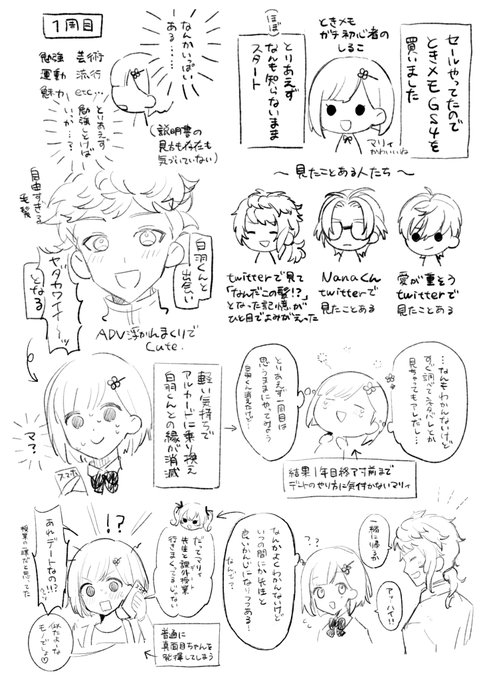 セールやってたので
ときメモGS4を
買いました
ときメモ
ガチ初心者の
しるこ
マリィ
かわいいね
(ほぼ)
とりあえず
なんも知らないまま
スタート
1周目
なんかいっぱい
ある……
勉強 芸術
運動 流行
魅力 etc…
とりあえず
勉強しとけば
いいか…?
(説明書の
見方も存在も
気づいていない)
〜見たことある人たち〜
愛が重そう
twitterで
見たことある
Nanaくん
twitterで
見たことある
twitterで見て
「なんだこの髪!?」
となった記憶が
ひと目でよみがえった
自由すぎる
毛髪
白羽くんと
出会い
ヤダカワイイ〜ッ
となる
ADV浮かれまくりで
Cute.
…なんもわかんないけど
すぐ調べてネタバレとか
見ちゃってもアレだし…
とりあえず一周目は
思うままにやってみよう
白羽くん消えたけど
結果1年目終了寸前まで
デートのやり方に気付かないマリィ
軽い気持ちで
アルカードに乗り換え
白羽くんとの縁が消滅
マ?
スマホ
一緒に帰るか
アッハイ!!
??
なんかよくわかんないけど
いつの間にか先生と
良いかんじになりつつある…
なんで?
だってマリィ
先生と課外授業
行きまくってるじゃない
!?
あれデートなの!!?
授業の一環だと思ってた
似たような
モノでしょ♡
普通に
真面目ちゃんを
発揮してしまう